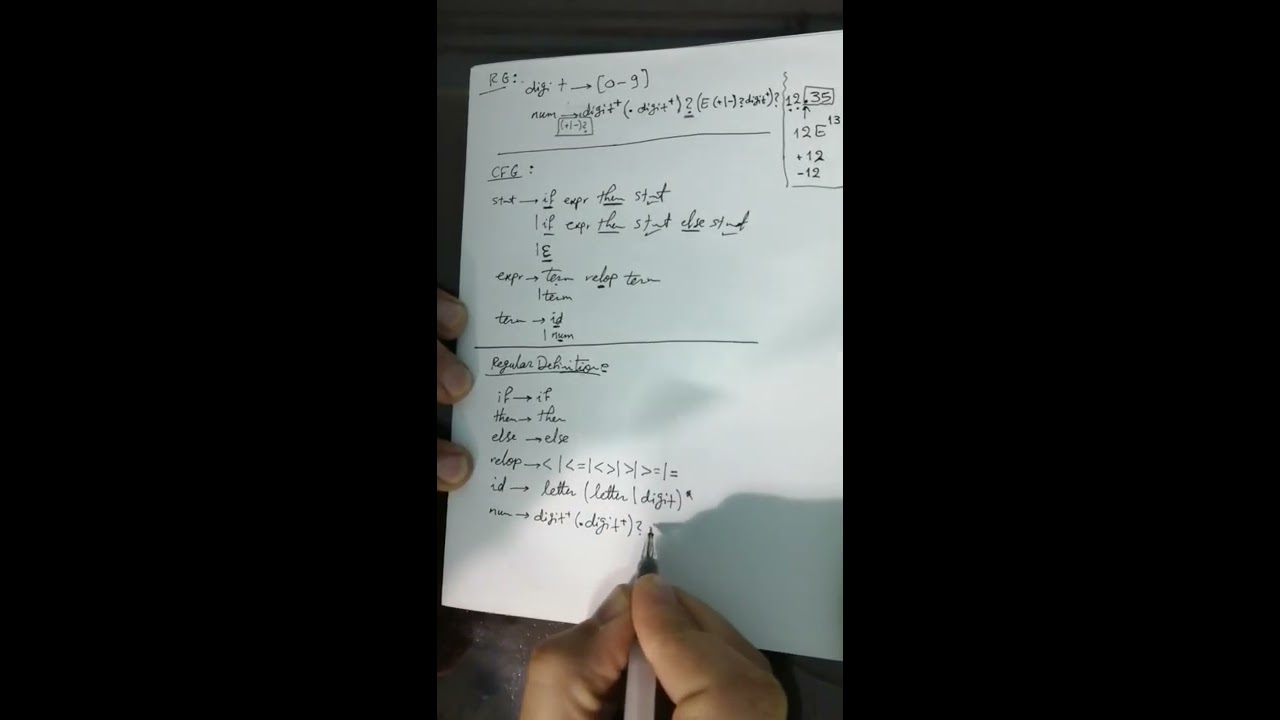 RG:
digit → [0-9]
num → digit⁺(.digit⁺)?(E(+|-)?digit⁺)?
(+|-)?
12.35
12E¹³
+12
-12
CFG:
stmt → if expr then stmt
| if expr then stmt else stmt
| ε
expr → term relop term
| term
term → id
| num
Regular Definition:
if → if
then → then
else → else
relop → < | <= | <> | > | >= | =
id → letter (letter | digit)*
num → digit⁺(.digit⁺)?